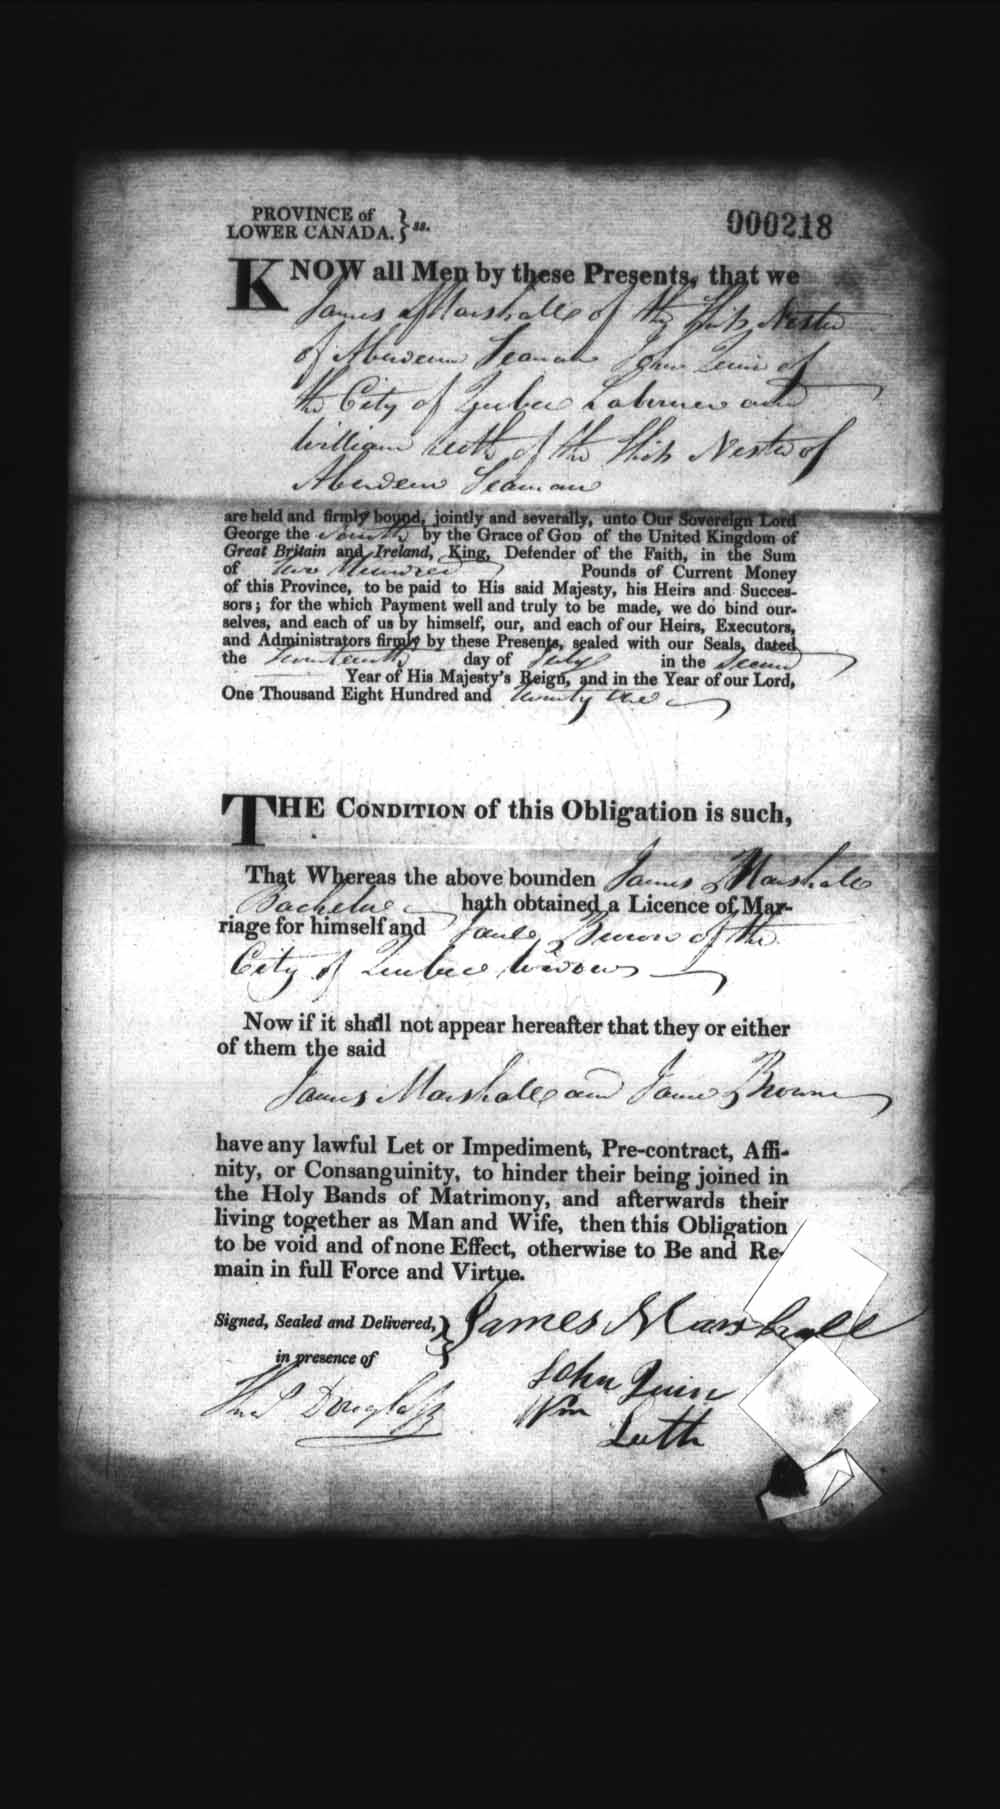 PROVINCE of
LOWER CANADA. } ss.
000218
KNOW all Men by these Presents, that we
James Marshall of the Ship Nestor
of Aberdeen Seaman John Quin of
the City of Quebec Labourer and
William Leith of the Ship Nestor of
Aberdeen Seaman
are held and firmly bound, jointly and severally, unto Our Sovereign Lord
George the Fourth by the Grace of GOD of the United Kingdom of
Great Britain and Ireland, King, Defender of the Faith, in the Sum
of Two Hundred Pounds of Current Money
of this Province, to be paid to His said Majesty, his Heirs and Succes-
sors; for the which Payment well and truly to be made, we do bind our-
selves, and each of us by himself, our, and each of our Heirs, Executors,
and Administrators firmly by these Presents, sealed with our Seals, dated
the day of July in the Second
Year of His Majesty's Reign, and in the Year of our Lord,
One Thousand Eight Hundred and twenty one
THE CONDITION of this Obligation is such,
That Whereas the above bounden James Marshall
Bachelor hath obtained a Licence of Mar-
riage for himself and Jane Brown of the
City of Quebec, Widow
Now if it shall not appear hereafter that they or either
of them the said
James Marshall and Jane Brown
have any lawful Let or Impediment, Pre-contract, Affi-
nity, or Consanguinity, to hinder their being joined in
the Holy Bands of Matrimony, and afterwards their
living together as Man and Wife, then this Obligation
to be void and of none Effect, otherwise to Be and Re-
main in full Force and Virtue.
Signed, Sealed and Delivered, } James Marshall
in presence of
John Quin
Thos Douglass
Wm
Luth